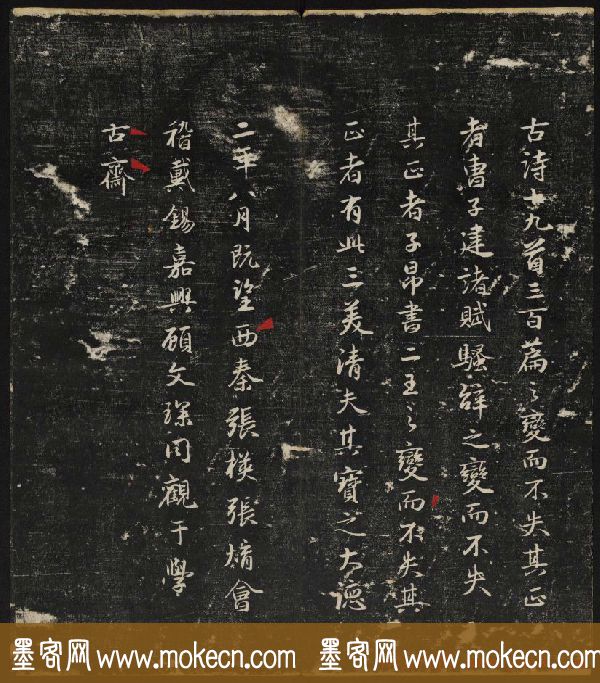 古詩十九首三百篇之變而不失其正
者曹子建諸賦騷辭之變而不失
其正者子昂書二王之變而不失其
正者有此三美清夫其寶之大德
二年八月既望西秦張楧張焴會
稽戴錫嘉興顧文琛同觀于學
古齋
墨客网 www.mokecn.com 墨客网 www.mokecn.com